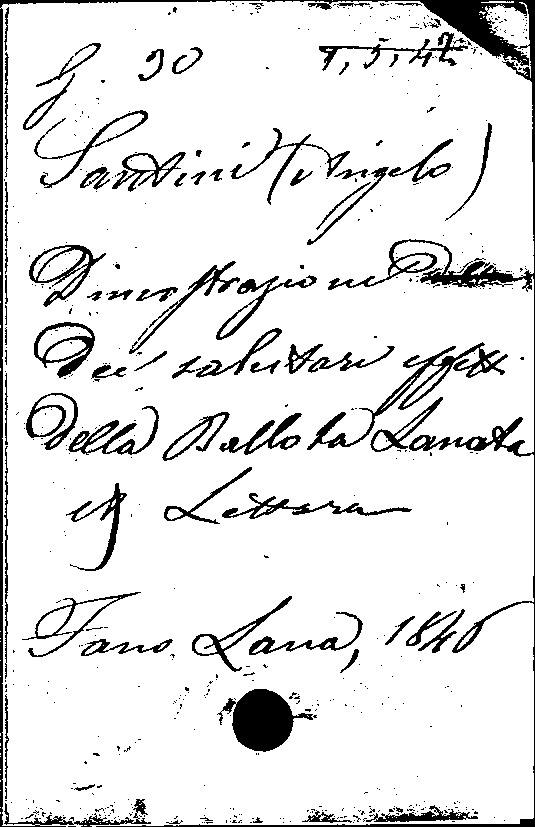 G. 30 T, 5, 42
Santini (Angelo)
Dimostrazione
Dei salutari effetti
della Ballota Lanata
Lettera
Fano Lana, 1846